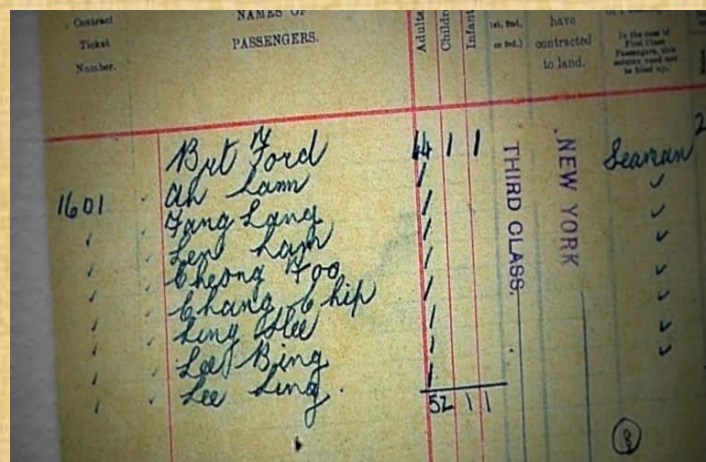 Contract
Ticket
Number.
NAMES OF
PASSENGERS.
Adults
Childr
Infant
1st, 2nd,
or 3rd.)
have
contracted
to land.
In the case of
First Class
Passengers, this
column need not
be filled up.
But Ford 44 1 1 Seaman 2
1601 Ah Lam
Fang Lang
Len Lam
Cheong Foo
Chang Chip
Ling Hee
Lee Bing
Lee Ling.
52 1 1
THIRD CLASS.
NEW YORK
8